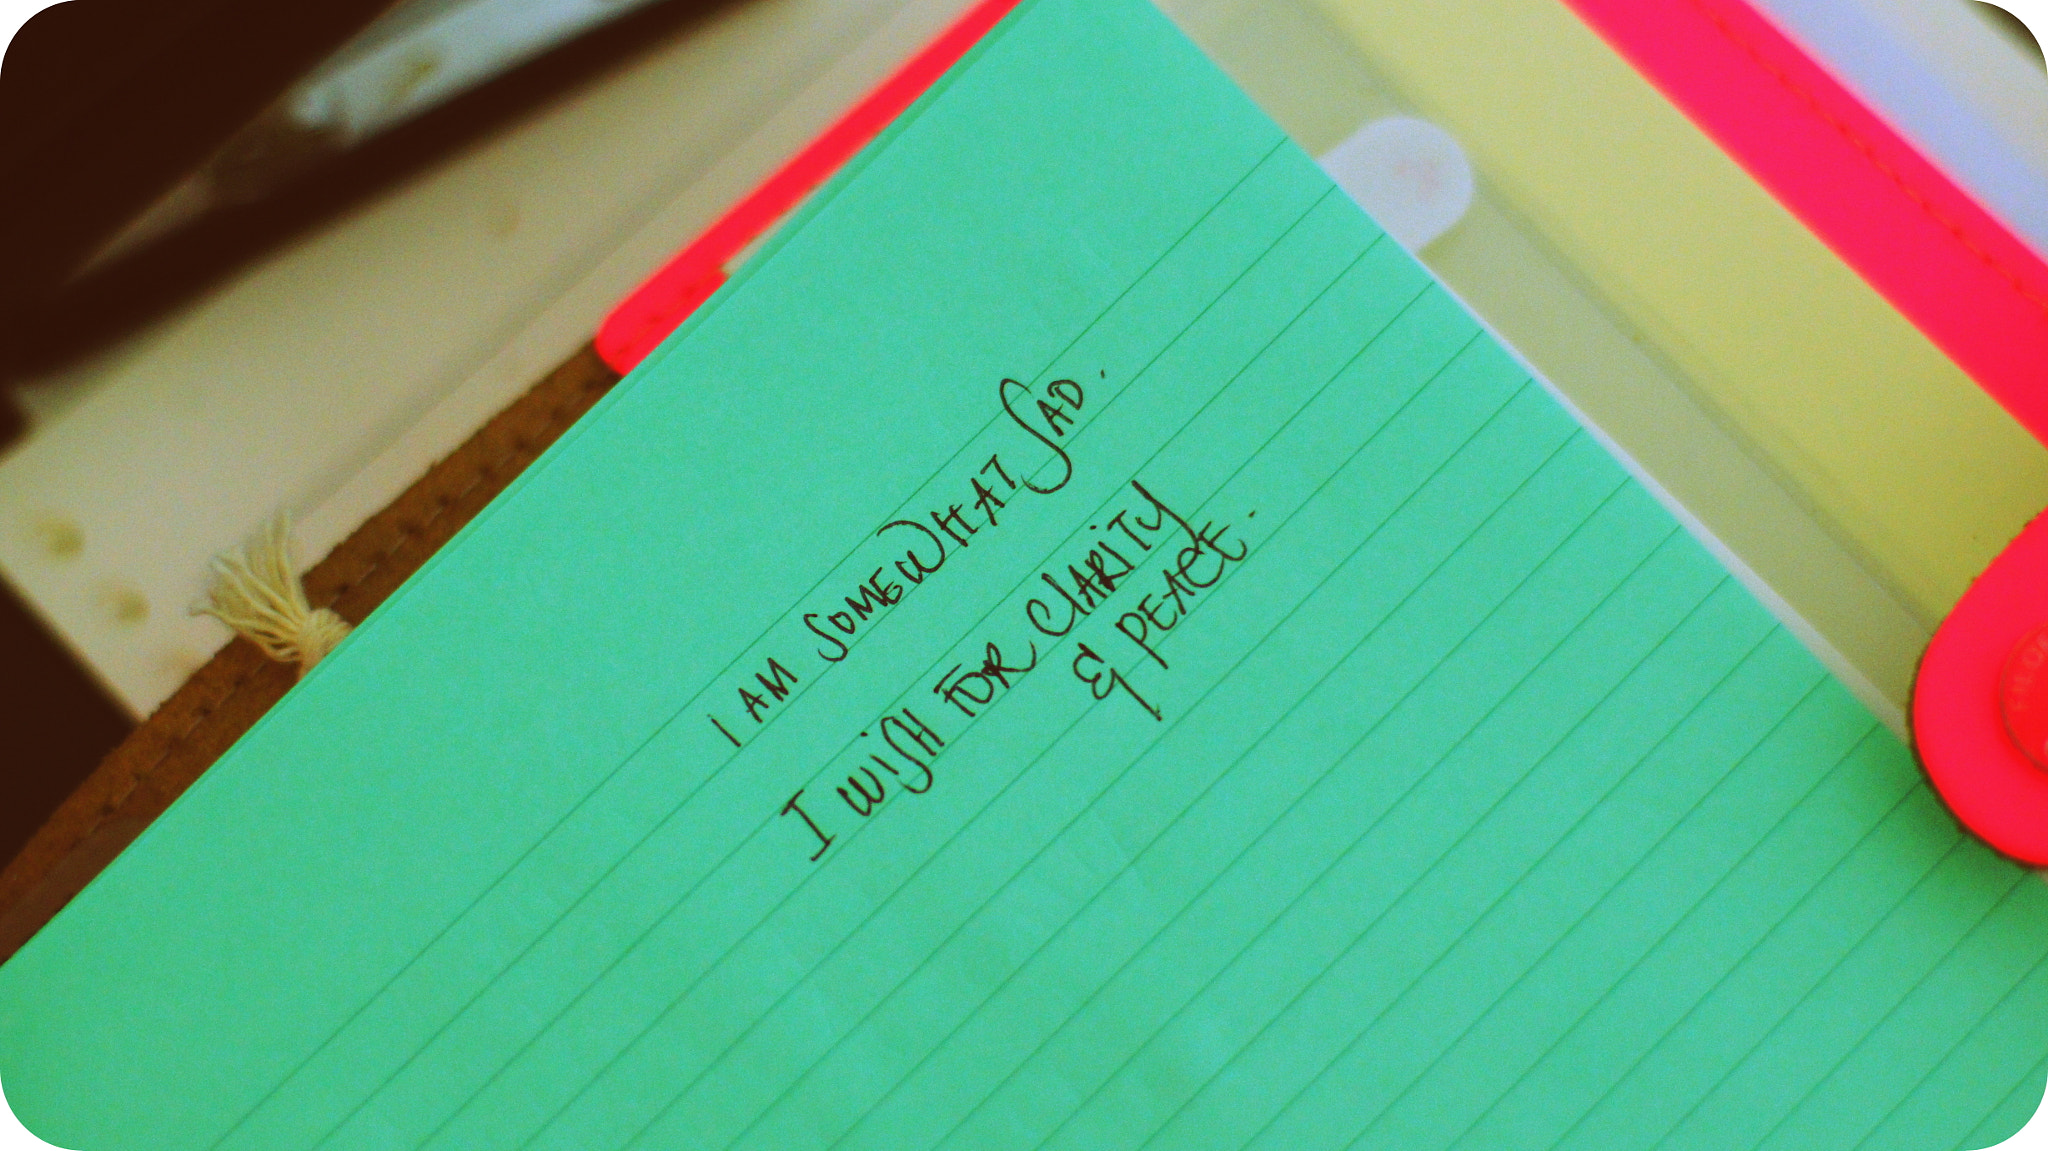 I AM SOMEWHAT SAD.
I WISH FOR CLARITY
& PEACE.